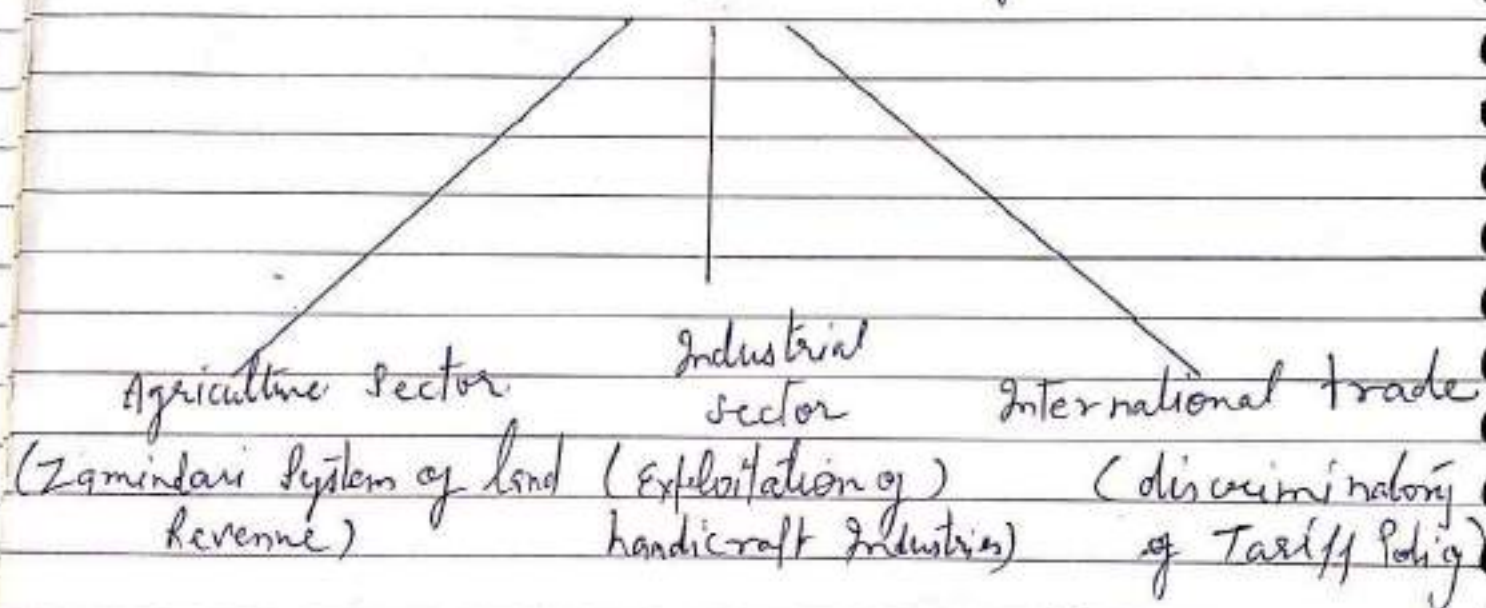 Agriculture Sector
(Zamindari System of land
Revenue)
Industrial
sector
(Exploitation of)
handicraft Industries)
International trade
(discriminatory
of Tariff Policy)